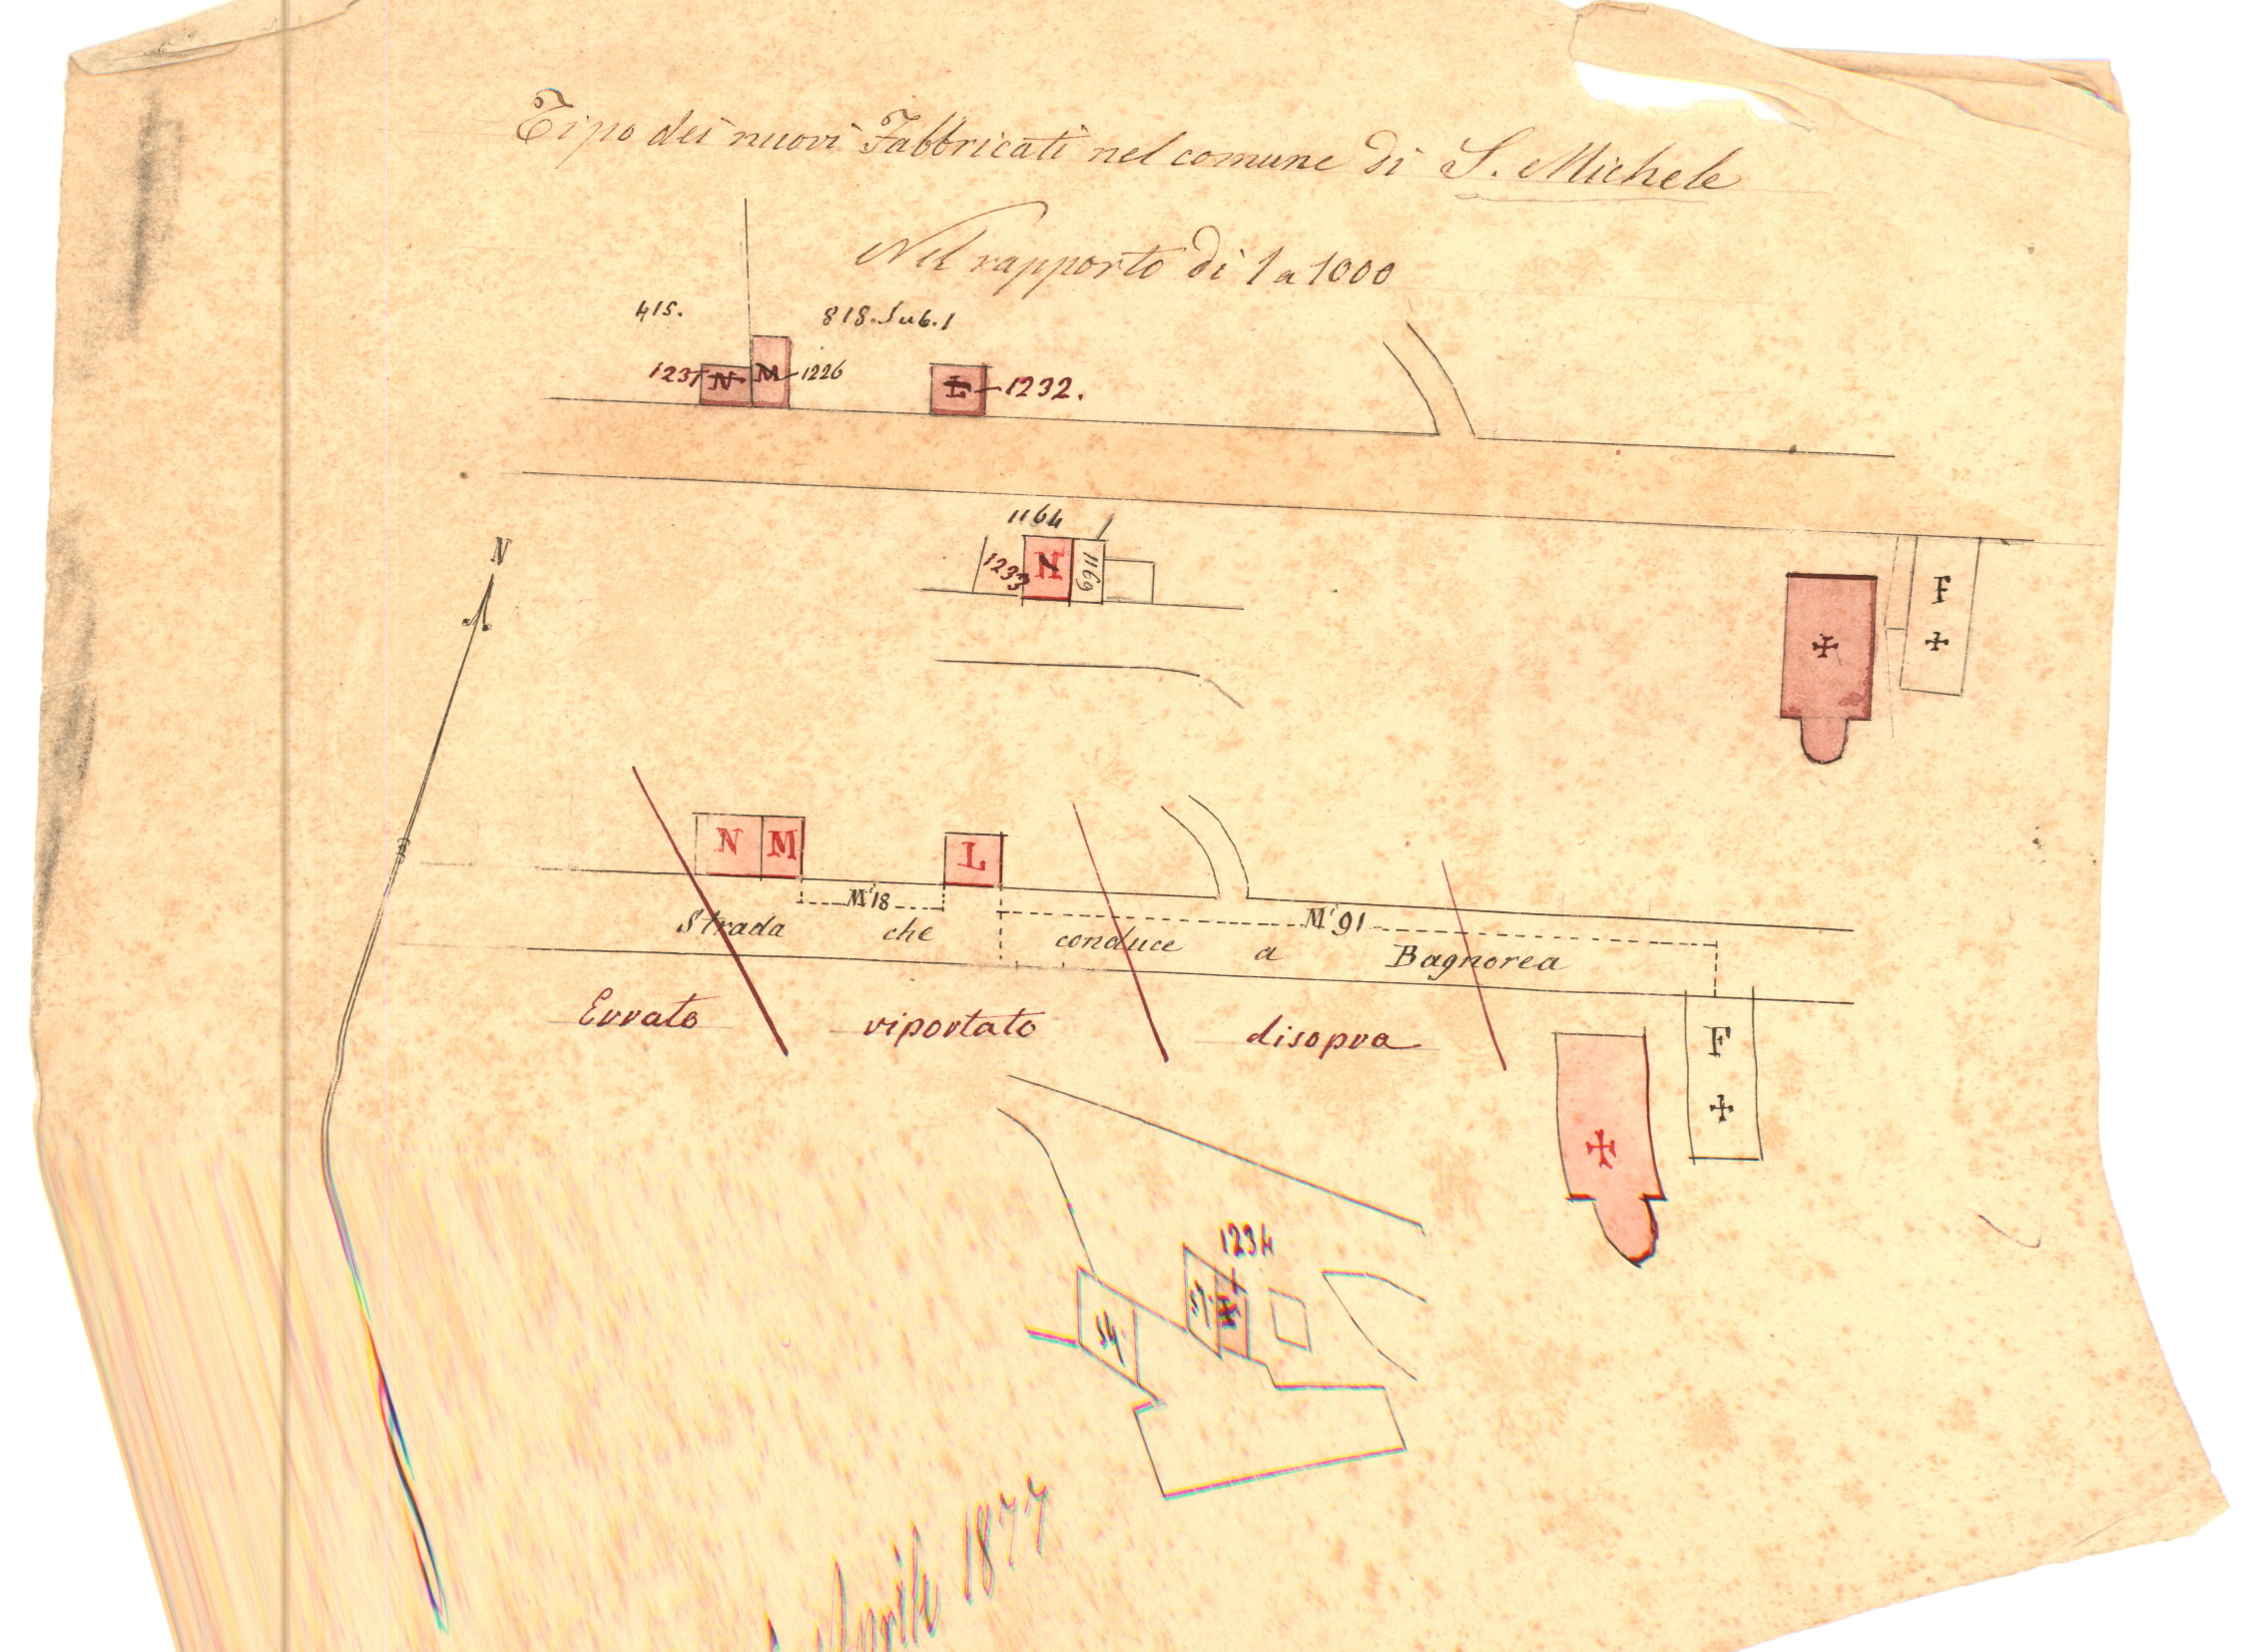 Tipo dei nuovi Fabbricati nel comune di S. Michele
Nel rapporto di 1 a 1000
415. 818. Sub. 1
1231 N M 1226 L 1232.
N
1164
1233 N 1169
F
✠ ✠
N M L
M.i 18 M.i 91
Strada che conduce a Bagnorea
Errato riportato disopra
F
✠
✠
1234
54 57
Aprile 1877